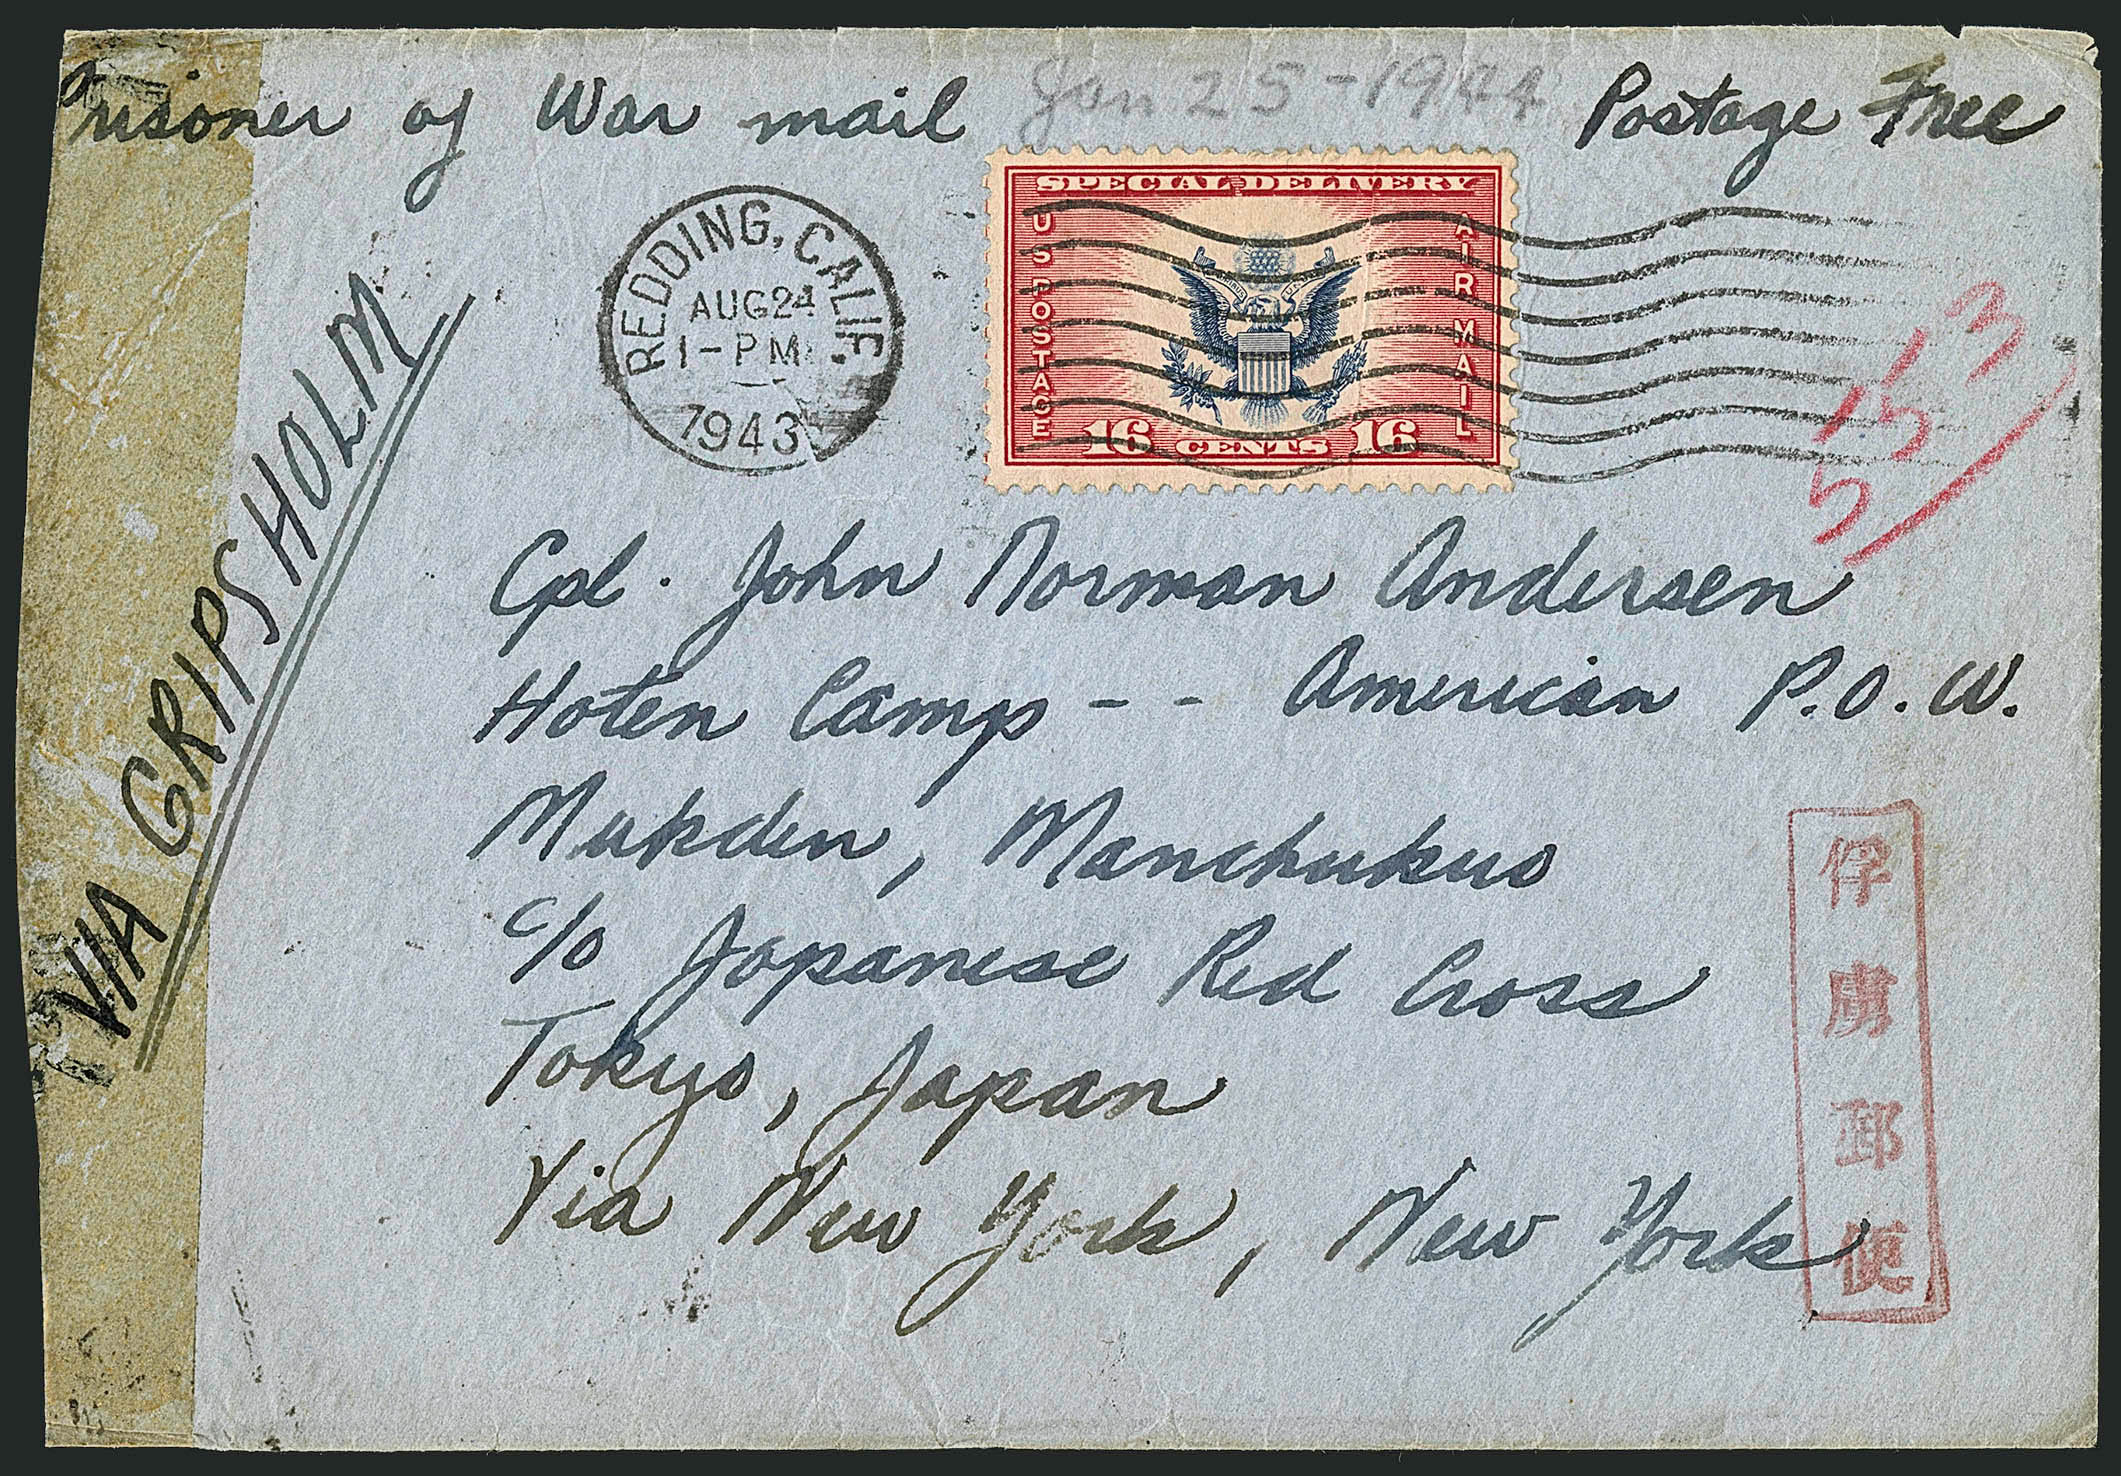 Prisoner of War mail
Jan 25-1944
Postage Free
SPECIAL DELIVERY
US POSTAGE
AIR MAIL
16 CENTS 16
REDDING, CALIF.
AUG 24
1-PM
1943
VIA GRIPSHOLM
13
15
5
Cpl. John Norman Andersen
Hoten Camp - - American P.O.W.
Mukden, Manchukuo
c/o Japanese Red Cross
Tokyo, Japan
Via New York, New York
俘虜郵便